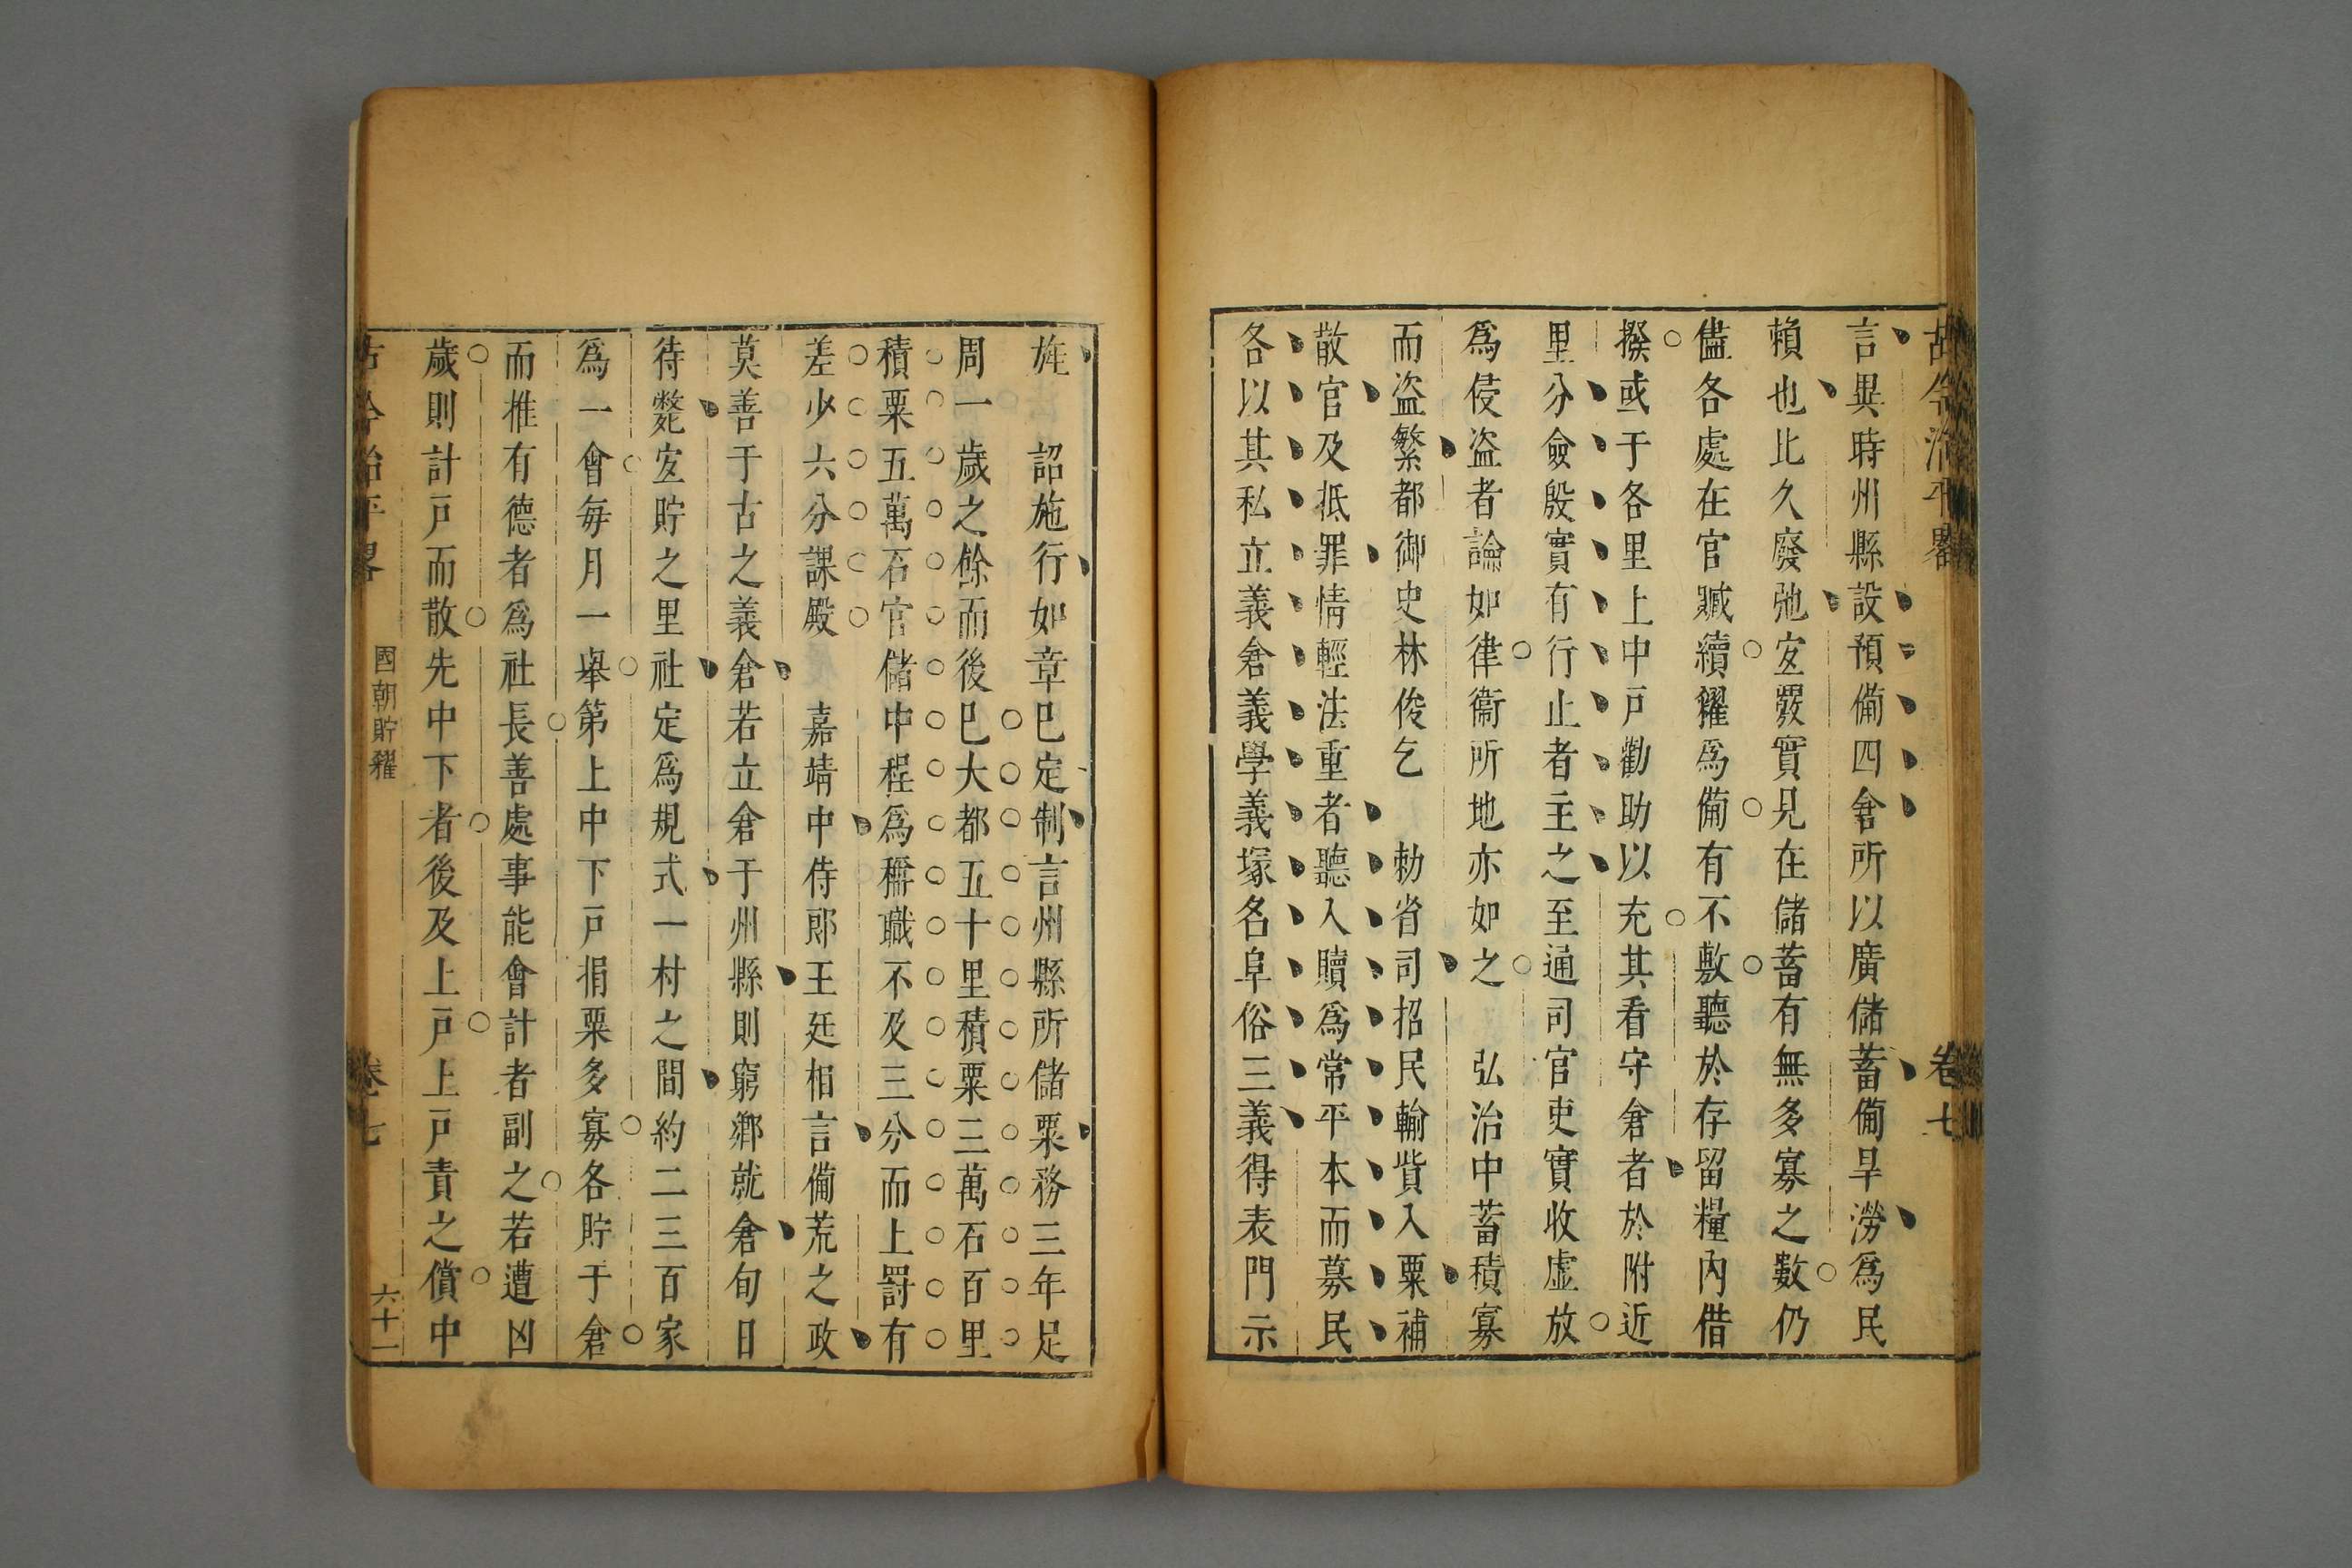 古今治平畧
卷七
言異時州縣設預備四倉所以廣儲蓄備旱澇爲民
賴也比久廢弛宜覈實見在儲蓄有無多寡之數仍
儘各處在官贓續糴爲備有不敷聽於存留糧內借
撥或于各里上中戸勸助以充其看守倉者於附近
里分僉殷實有行止者主之至通司官吏實收虛放
爲侵盜者論如律衞所地亦如之 弘治中蓄積寡
而盜繁都御史林俊乞 勅省司招民輸貲入粟補
散官及抵罪情輕法重者聽入贖爲常平本而募民
各以其私立義倉義學義塚名阜俗三義得表門示
旌 詔施行如章巳定制言州縣所儲粟務三年足
周一歲之餘而後巳大都五十里積粟三萬石百里
積粟五萬石官儲中程爲稱職不及三分而上罸有
差少六分課殿 嘉靖中侍郎王廷相言備荒之政
莫善于古之義倉若立倉于州縣則窮鄉就倉旬日
待斃宜貯之里社定爲規式一村之間約二三百家
爲一會每月一舉第上中下戸捐粟多寡各貯于倉
而推有德者爲社長善處事能會計者副之若遭凶
歲則計戸而散先中下者後及上戸上戸責之償中
古今治平畧
國朝貯糴
卷七
六十一